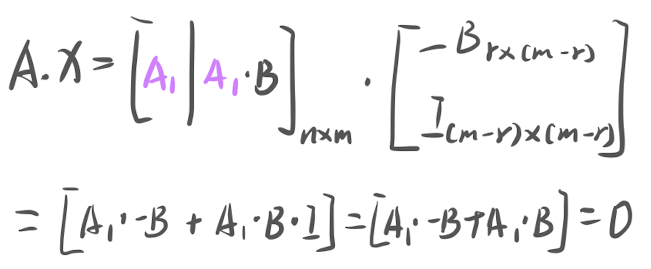 A·X = [A₁ | A₁·B]ₙₓₘ · [−B_{r×(m−r)} ; I_{(m−r)×(m−r)}]
= [A₁·−B + A₁·B·I] = [A₁·−B + A₁·B] = 0